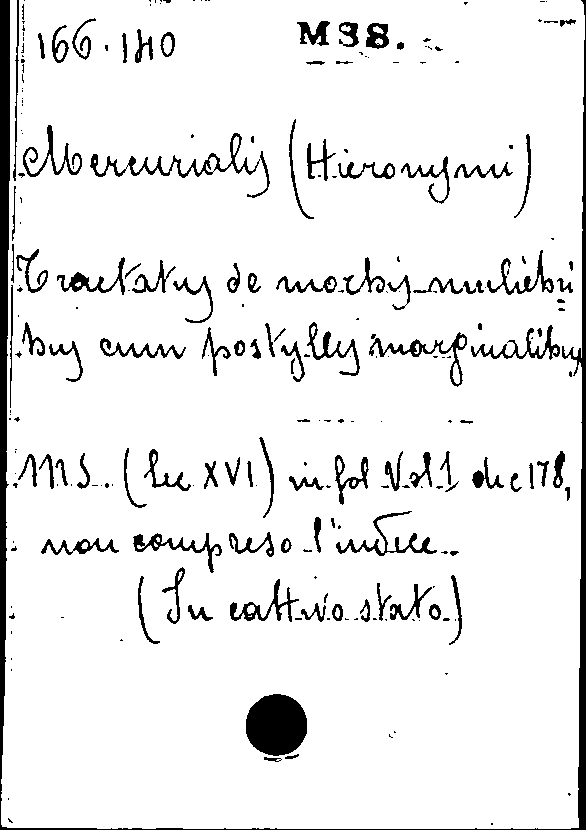 166.140 MSS.
Mercurialis (Hieronymi)
Tractatus de morbis muliebri=
bus cum postyllis marginalibus
MS. (Sec XVI) in fol Vol 1 di c 178,
non compreso l'indice.
(In cattivo stato)